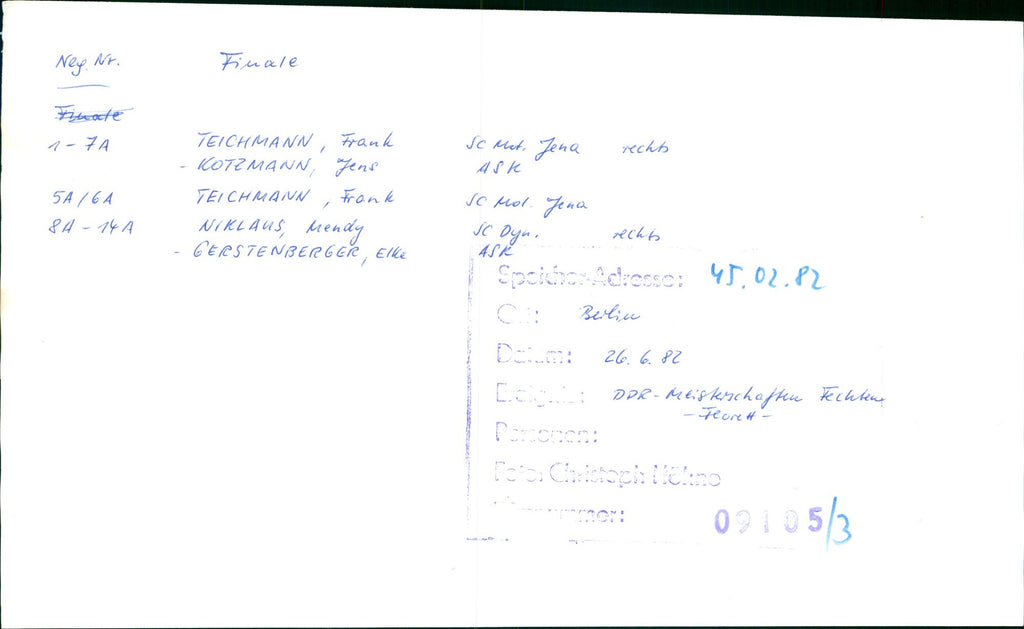 Neg. Nr. Finale
Finale
1 - 7A TEICHMANN, Frank SC Mot. Jena rechts
- KOTZMANN, Jens ASK
5A/6A TEICHMANN, Frank SC Mot. Jena
8A - 14A NIKLAUS, Mendy SC Dyn. rechts
- GERSTENBERGER, Elke ASK
Speicher-Adresse: 45.02.82
Ort: Berlin
Datum: 26. 6. 82
Ereignis: DDR-Meisterschaften Fechten
- Florett -
Personen:
Foto: Christoph Höhne
09105/3